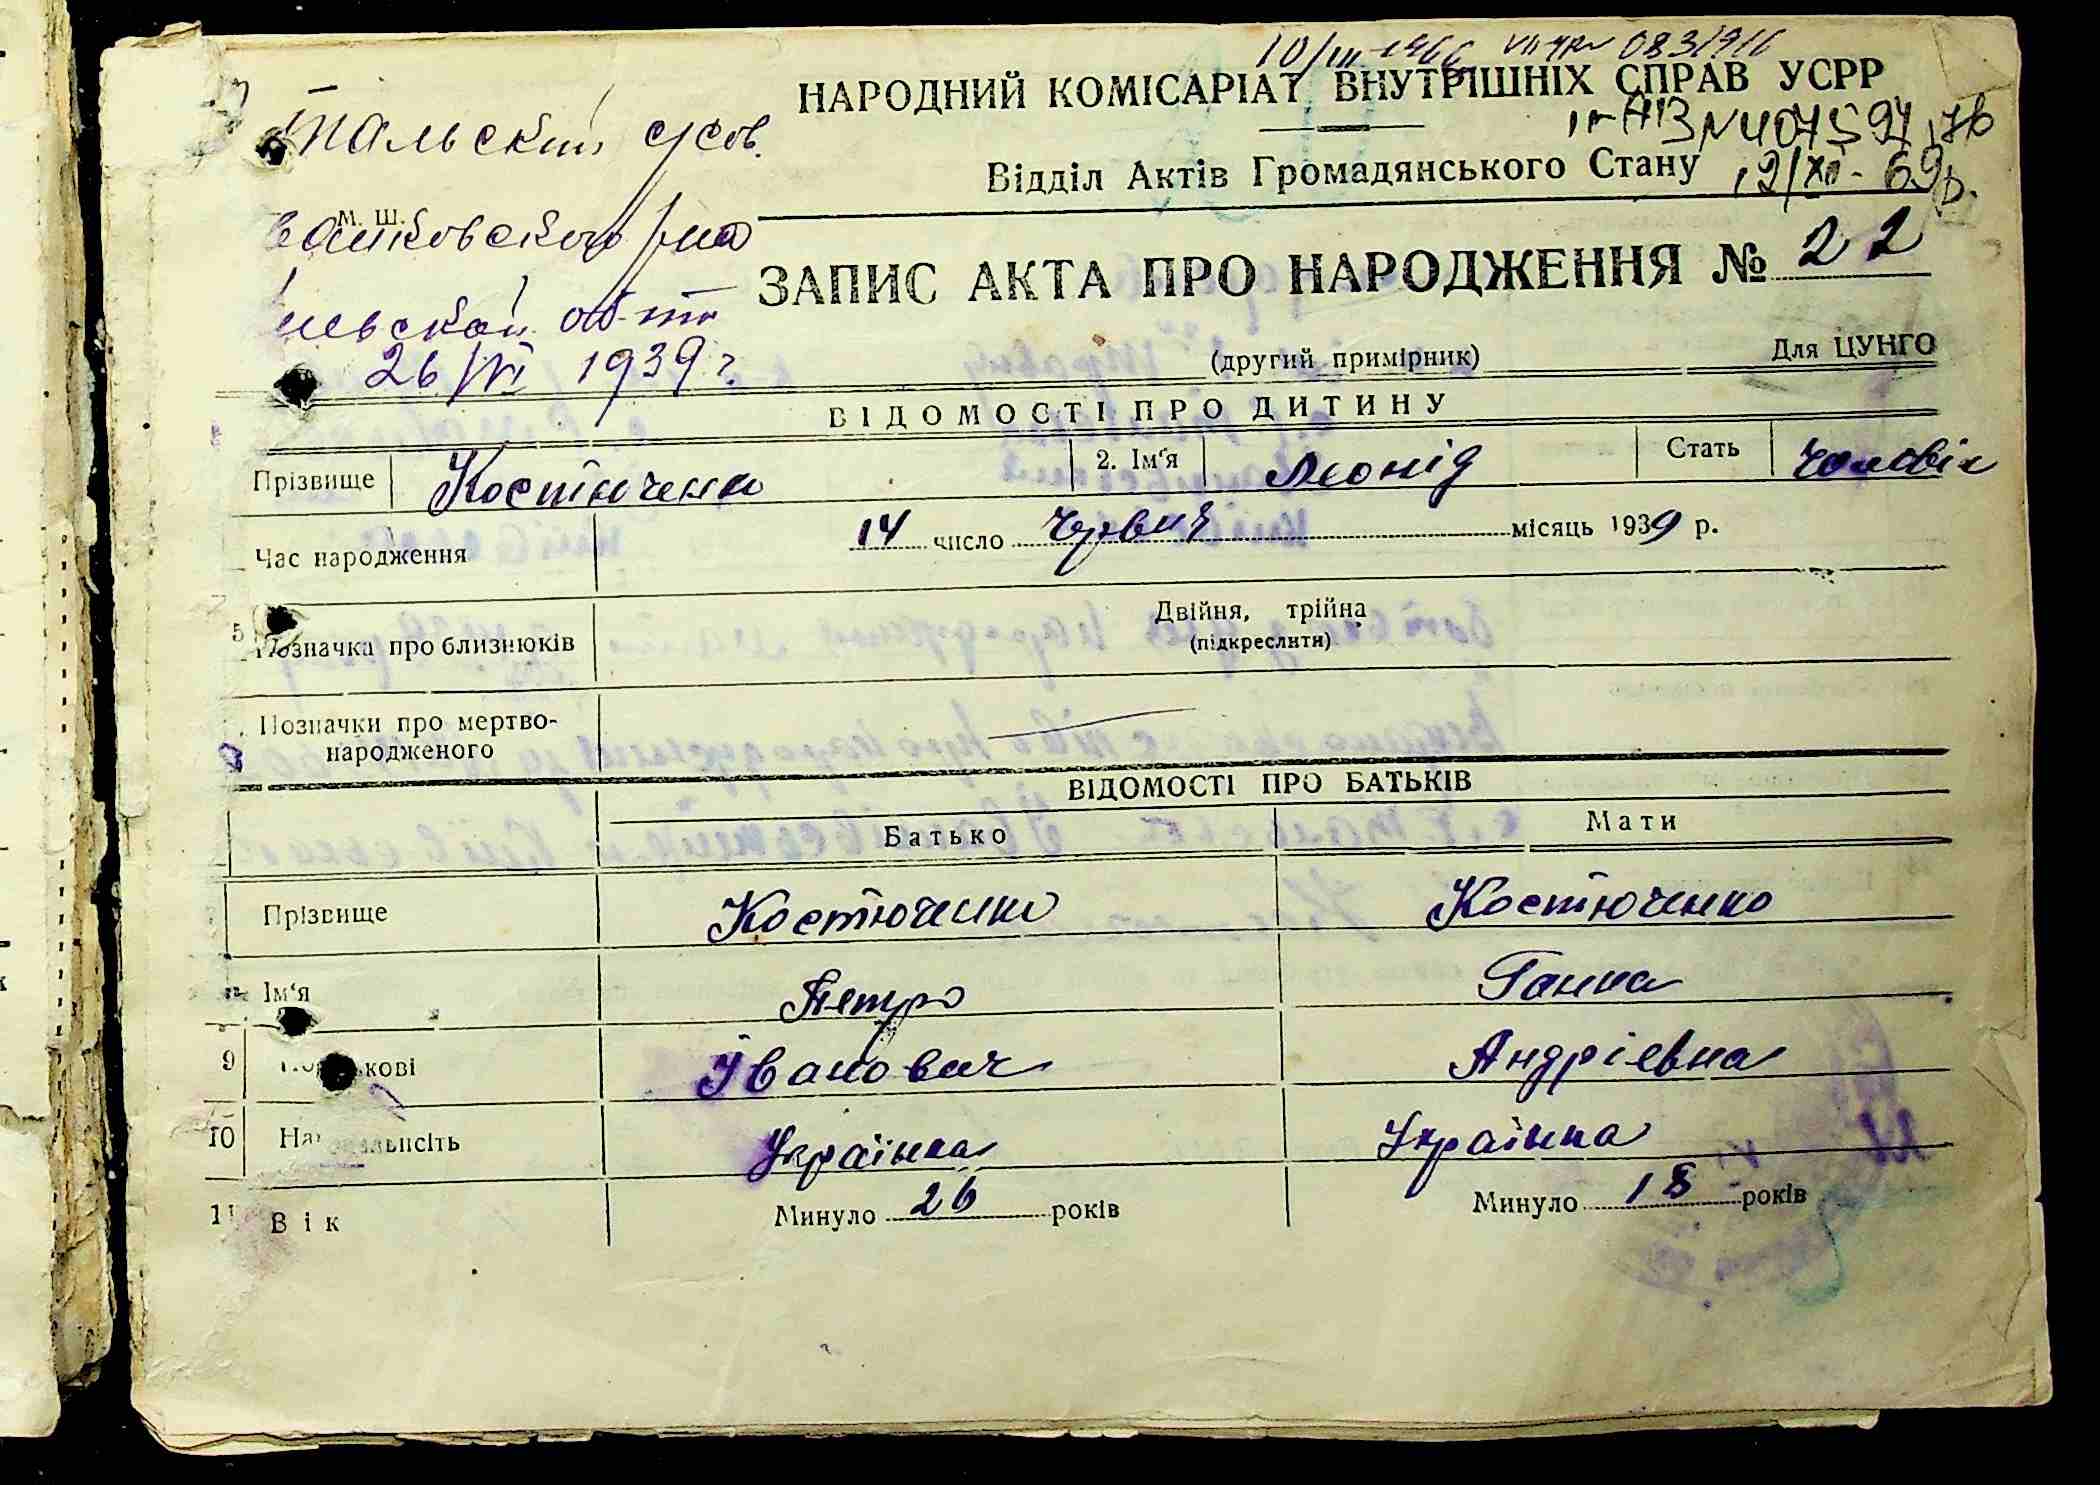 10/III-1966 0831916
НАРОДНИЙ КОМІСАРІАТ ВНУТРІШНІХ СПРАВ УСРР
Тальский с/сов.
Відділ Актів Громадянського Стану
12/XII-69р.
М. Ш.
ЗАПИС АКТА ПРО НАРОДЖЕННЯ № 22
26/VI 1939 г.
(другий примірник)
Для ЦУНГО
ВІДОМОСТІ ПРО ДИТИНУ
Прізвище Костюченко 2. Ім'я Леонід Стать чоловіч
Час народження 14 число червня місяць 1939 р.
5 Позначка про близнюків Двійня, трійна
(підкреслити)
Позначки про мертво-
народженого
ВІДОМОСТІ ПРО БАТЬКІВ
Батько Мати
Прізвище Костюченко Костюченко
Ім'я Петро Ганна
9 кові Іванович Андріевна
10 На альнсіть Українка Українка
11 Вік Минуло 26 років Минуло 18 років